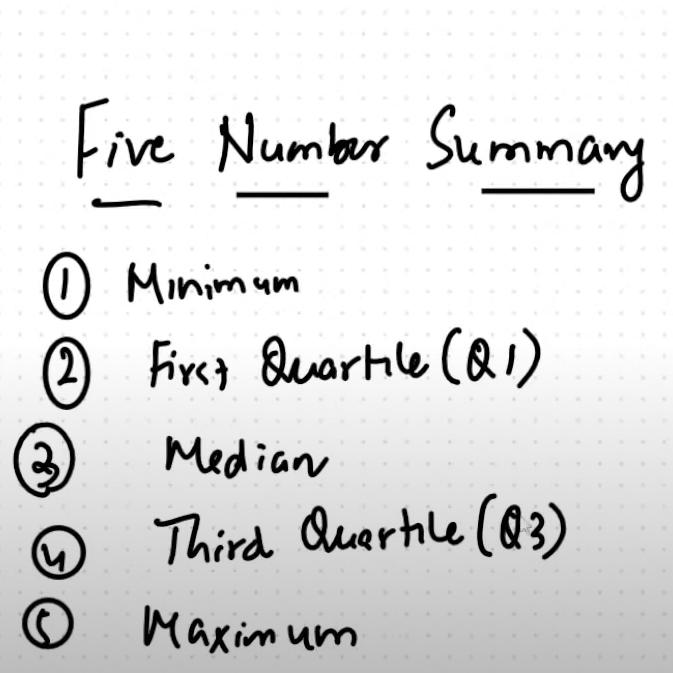 Five Number Summary
① Minimum
② First Quartile (Q1)
③ Median
④ Third Quartile (Q3)
⑤ Maximum